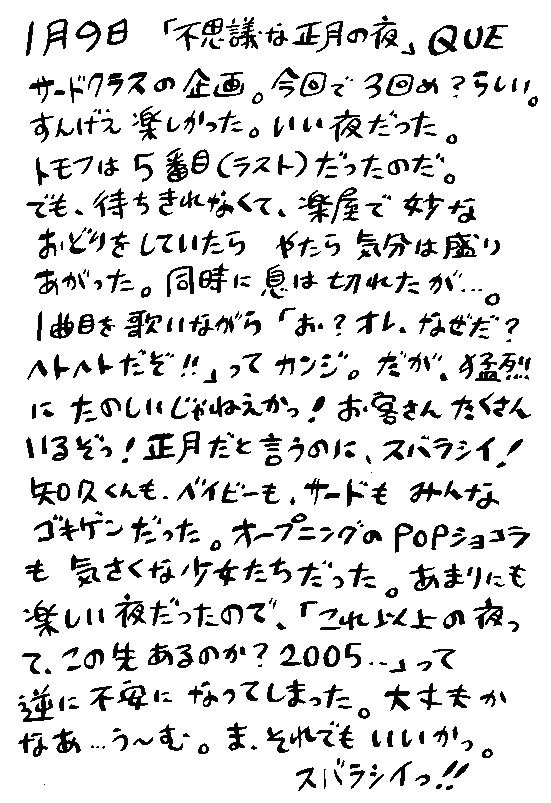 1月9日 「不思議な正月の夜」QUE
サードクラスの企画。今回で3回め?らしい。
すんげえ楽しかった。いい夜だった。
トモフは5番目(ラスト)だったのだ。
でも、待ちきれなくて、楽屋で妙な
おどりをしていたら やたら気分は盛り
あがった。同時に息は切れたが…。
1曲目を歌いながら「お?オレ、なぜだ?
ヘトヘトだぞ!!」ってカンジ。だが、猛烈
にたのしいじゃねえかっ!お客さんたくさん
いるぞっ!正月だと言うのに、スバラシイ!
知久くんも、ベイビーも、サードもみんな
ゴキゲンだった。オープニングのPOPショコラ
も気さくな少女たちだった。あまりにも
楽しい夜だったので、「これ以上の夜っ
て、この先あるのか?2005…」って
逆に不安になってしまった。大丈夫か
なあ…う〜む。ま、それでもいいかっ。
スバラシイっ!!